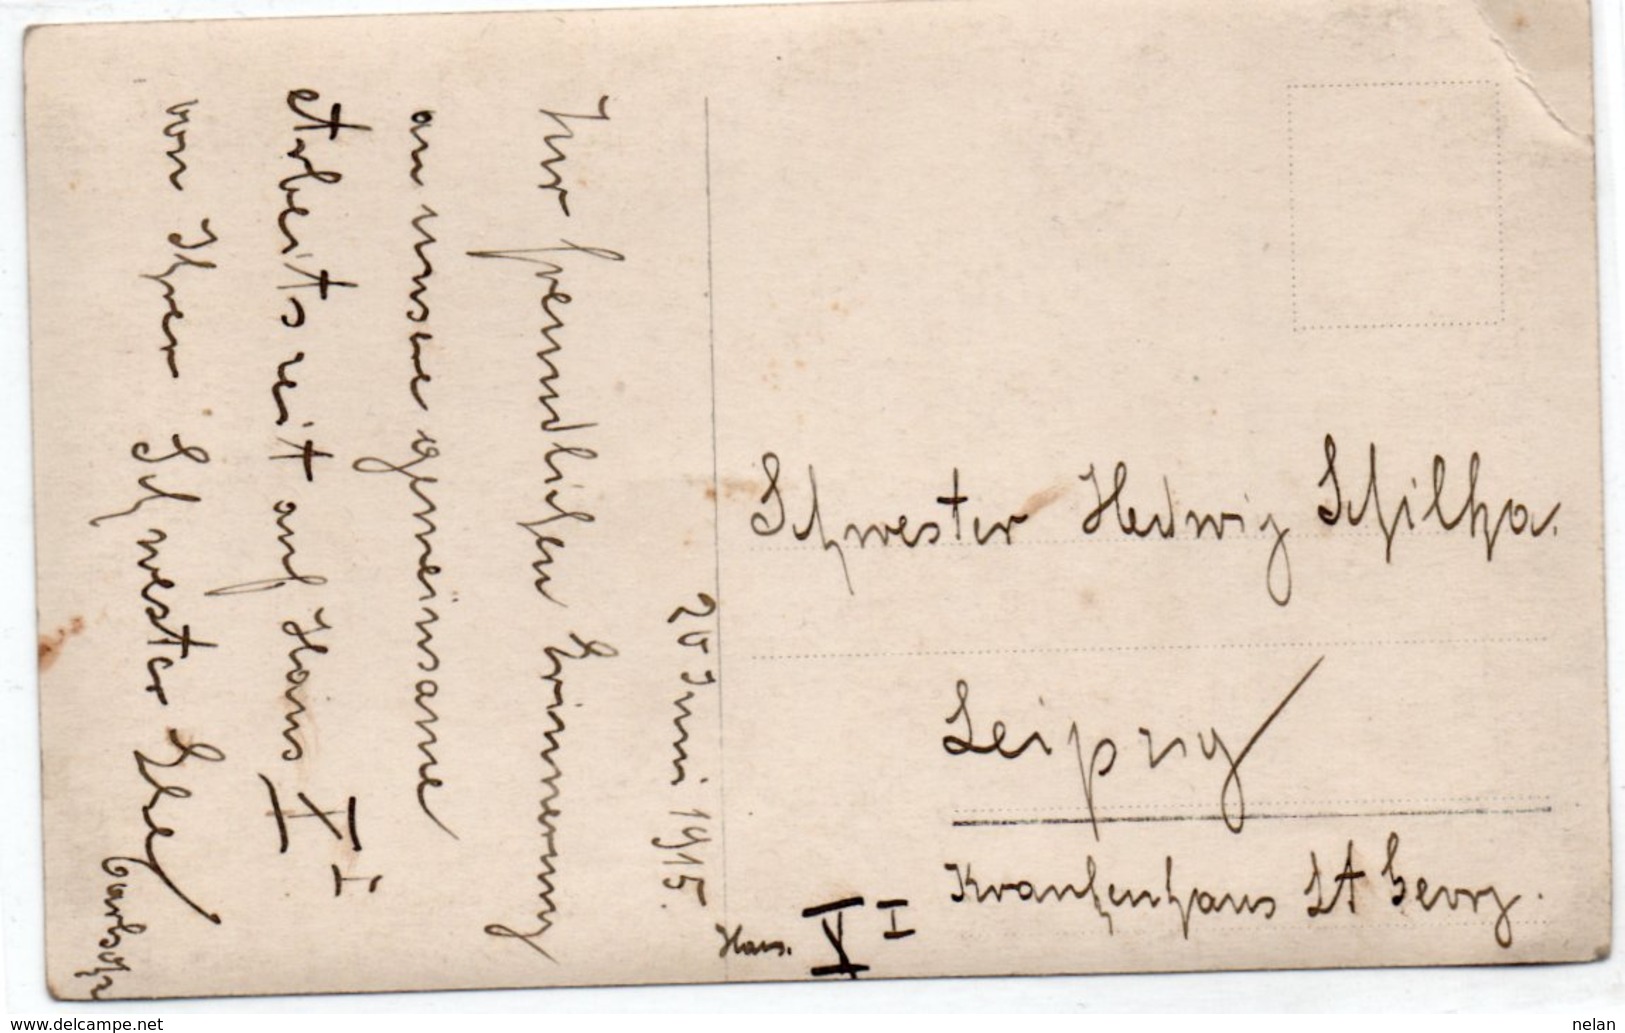 20 Juni 1915.
Zur freundlichen Erinnerung
an unsere gemeinsame
Arbeitszeit auf Haus X I
von Ihrer Schwester Else
Schwester Hedwig Schilka.
Leipzig
Krankenhaus St Georg.
Haus. X I
www.delcampe.net
nelan